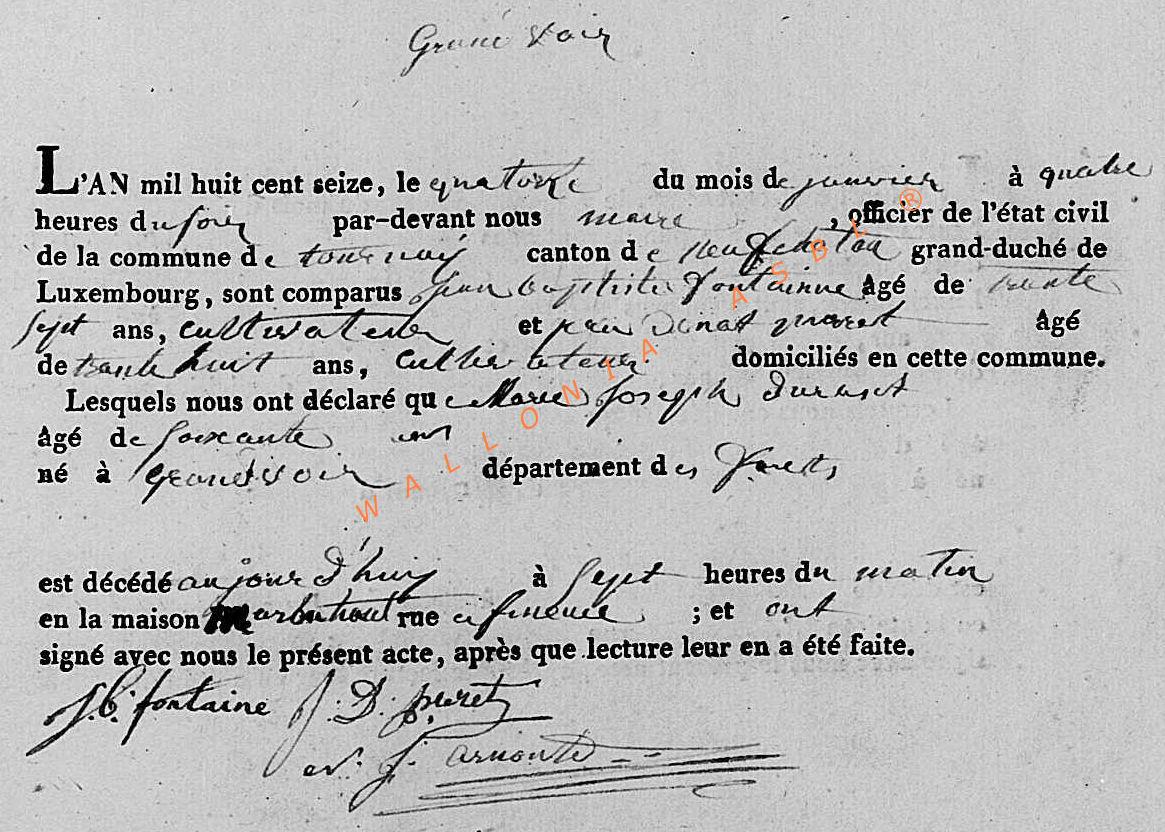 Grand Voir
L'AN mil huit cent seize, le quatorze du mois de janvier à quatre
heures du soir par-devant nous maire, officier de l'état civil
de la commune de tournay canton de neufchateau grand-duché de
Luxembourg, sont comparus jean baptiste fontainne âgé de trente
sept ans, cultivateur et jean Donat âgé
de trente huit ans, domiciliés en cette commune.
Lesquels nous ont déclaré que Marie Joseph
âgé de soixante ans
né à Grandvoir département des Forets
est décédé aujourd'huy à Sept heures du matin
en la maison rue ; et ont
signé avec nous le présent acte, après que lecture leur en a été faite.
J. B. fontaine J. D.
WALLONIA ASBL ®